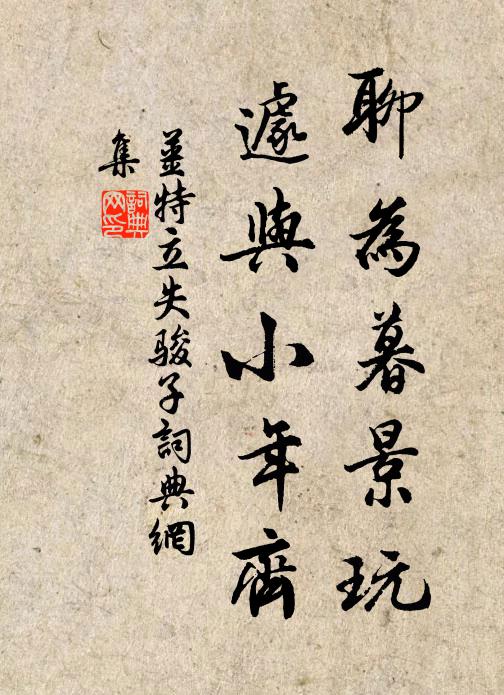 聊為暮景玩
遽與小年齊
薑特立失駿子詞典網
集
詞典
网印